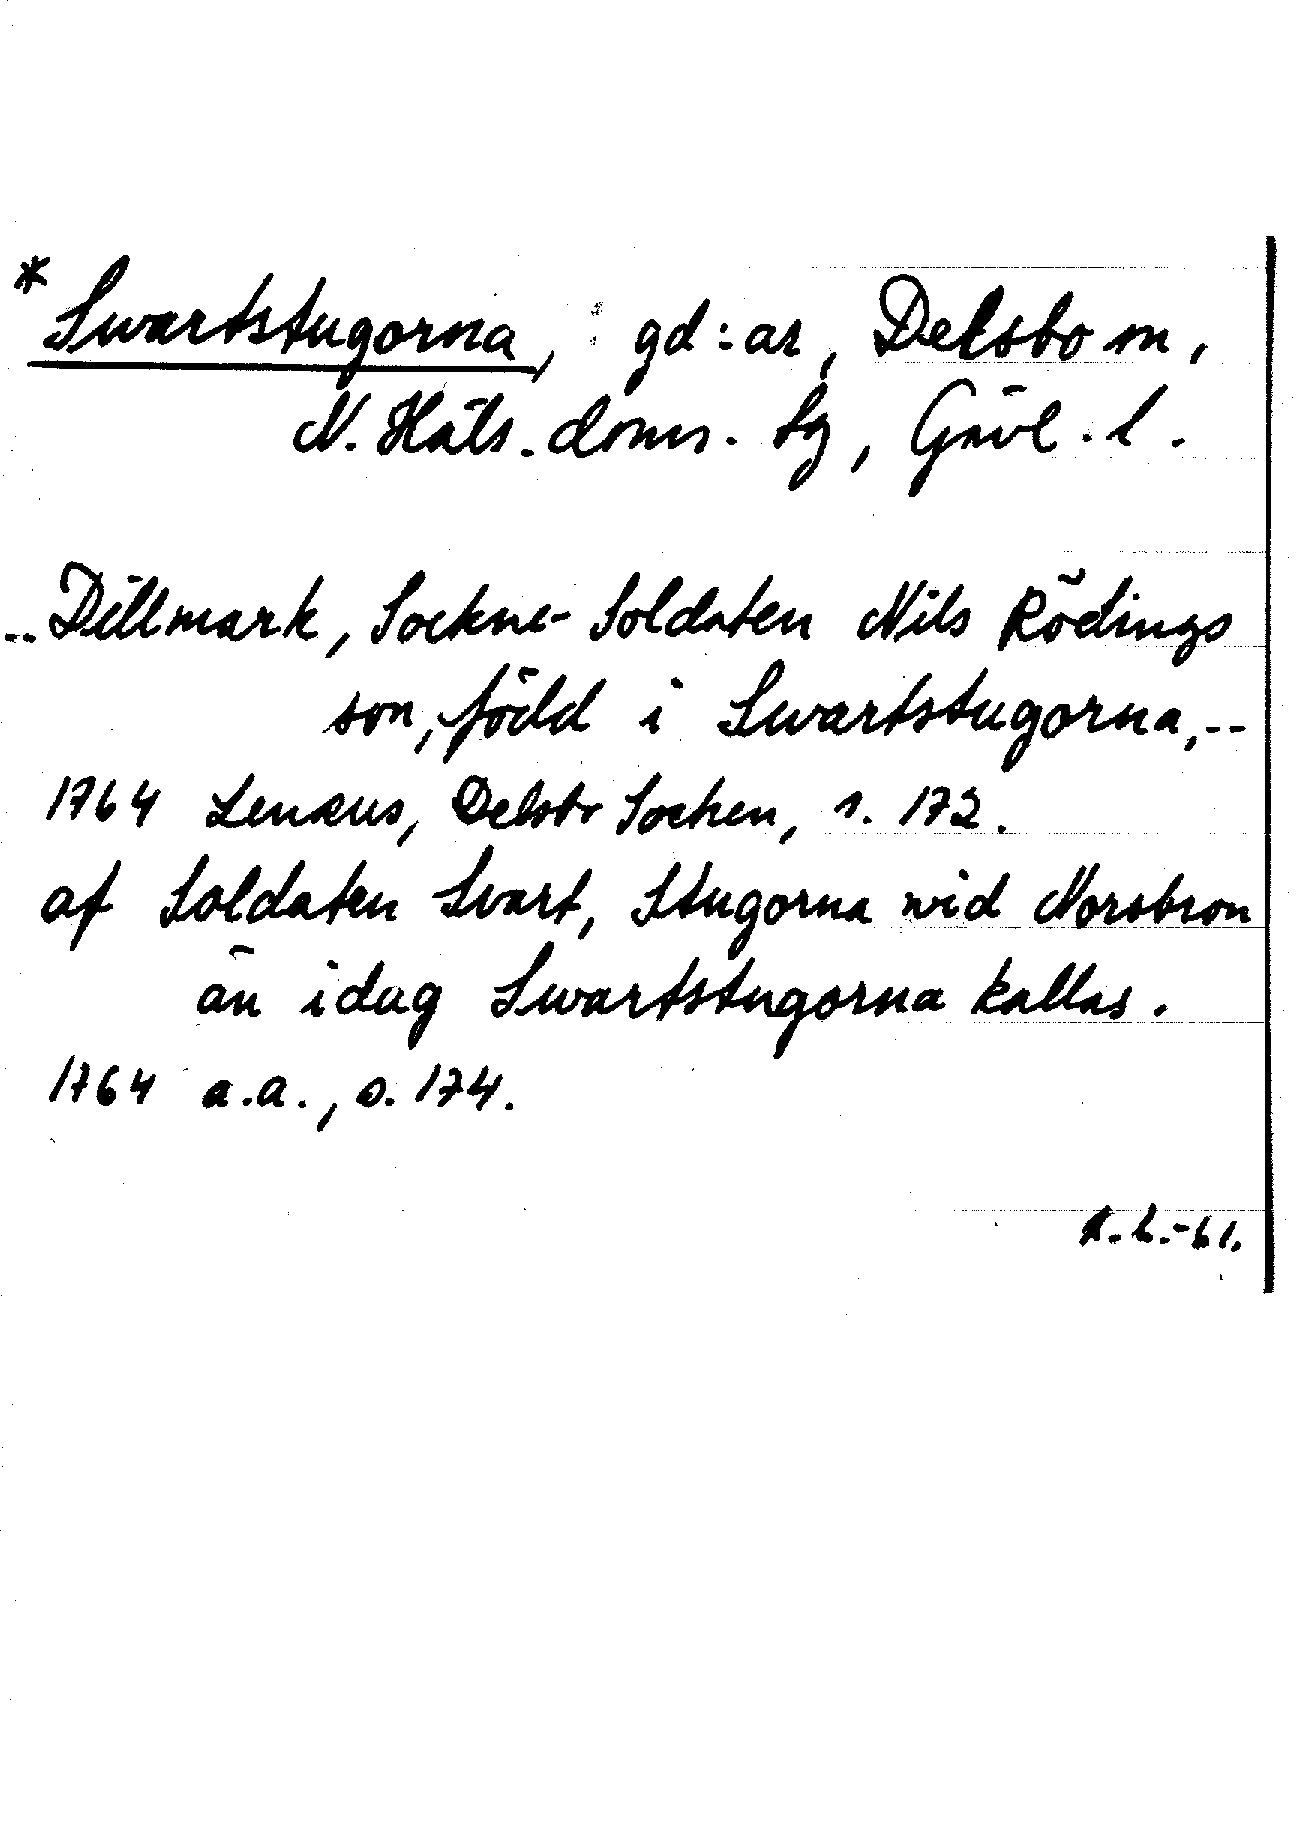 * Swartstugorna, : gd:ar, Delsbo sn,
N. Häls. doms. sg, Gävl. l.
-- Dillmark, Sockne-Soldaten Nils Rödings
son, född i Swartstugorna, --
1764 Lenæus, Delsbo Socken, s. 172.
af Soldaten Svart, Stugorna wid Norsbron
än i dag Swartstugorna kallas.
1764 a.a., s. 174.
-61.